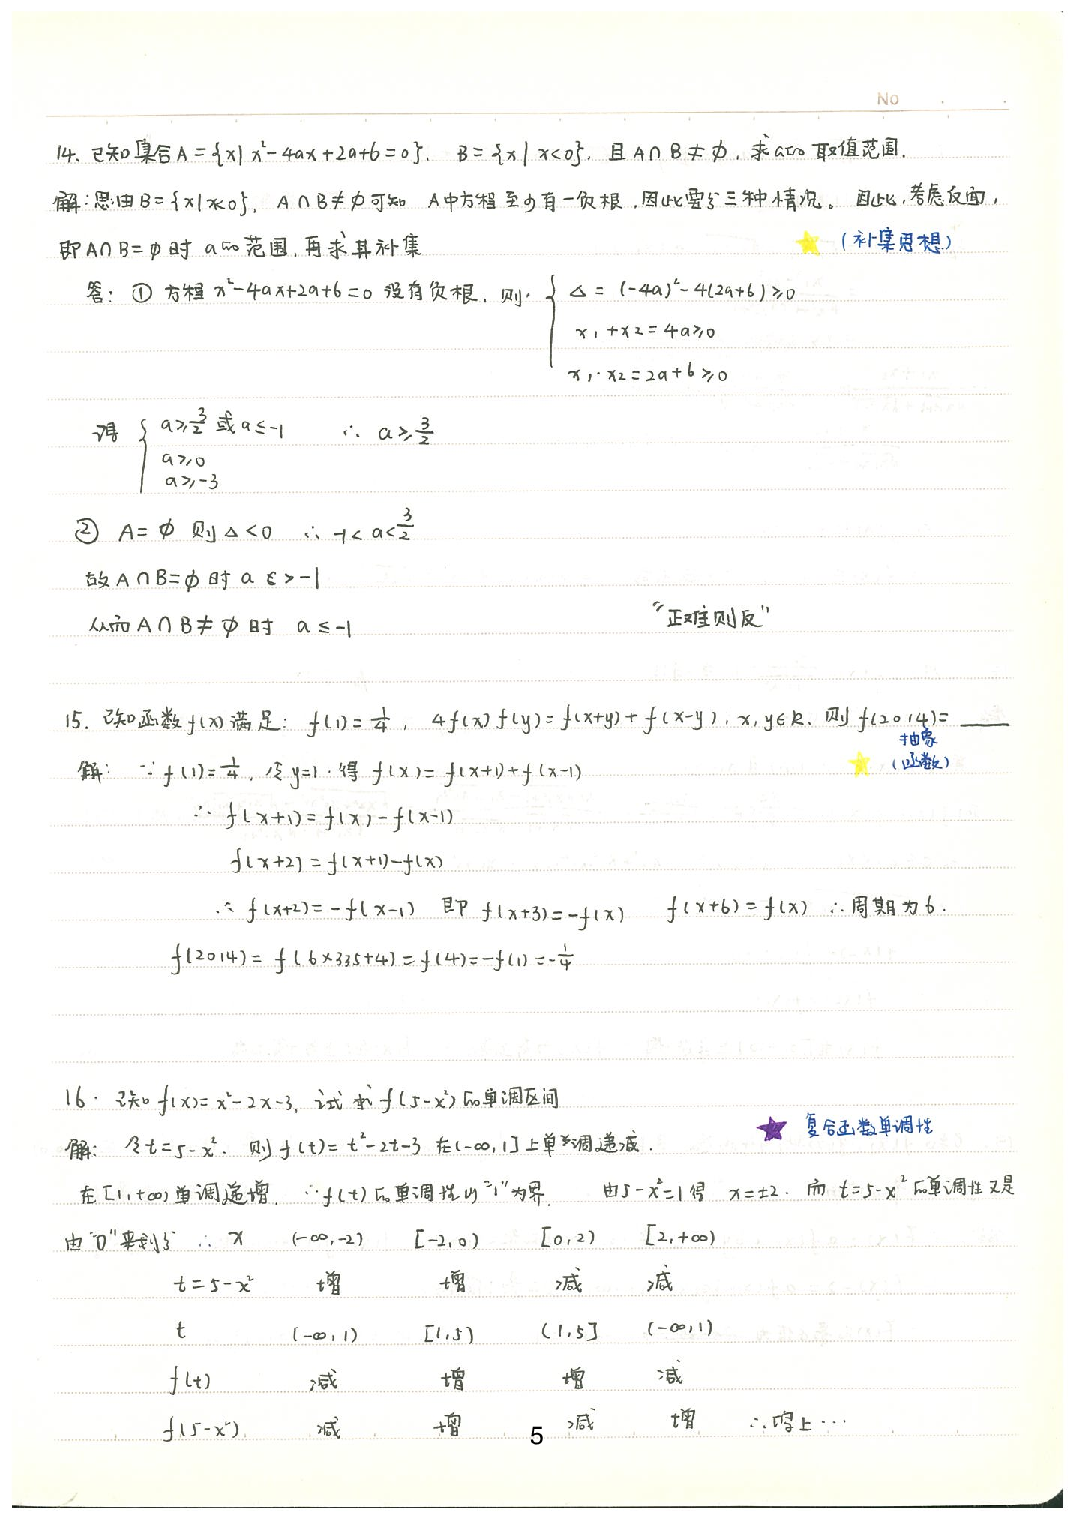 No
14. 已知集合A={x|x²-4ax+2a+6=0}, B={x|x<0}, 且A∩B≠∅, 求a的取值范围.
解:思由B={x|x<0}, A∩B≠∅可知 A中方程至少有一负根,因此需分三种情况。因此,考虑反面,
即A∩B=∅时 a的范围,再求其补集 (补集思想)
答: ① 方程x²-4ax+2a+6=0没有负根, 则 { △=(-4a)²-4(2a+6)≥0
x₁+x₂=4a≥0
x₁·x₂=2a+6≥0
得 { a≥3/2 或a≤-1 ∴ a≥3/2
a≥0
a≥-3
② A=∅ 则△<0 ∴ -1<a<3/2
故A∩B=∅时 a ε>-1
从而A∩B≠∅时 a≤-1 “正难则反”
15. 已知函数f(x)满足: f(1)=1/4, 4f(x)f(y)=f(x+y)+f(x-y), x,y∈R. 则f(2014)=____
抽象
解: ∵f(1)=1/4, 令y=1·得 f(x)=f(x+1)+f(x-1) (函数)
∴ f(x+1)=f(x)-f(x-1)
f(x+2)=f(x+1)-f(x)
∴ f(x+2)=-f(x-1) 即 f(x+3)=-f(x) f(x+6)=f(x) ∴周期为6.
f(2014)=f(6×335+4)=f(4)=-f(1)=-1/4
16. 已知f(x)=x²-2x-3, 试求f(5-x²)的单调区间
解: 令t=5-x². 则f(t)=t²-2t-3 在(-∞,1]上单调递减. 复合函数单调性
在[1,+∞)单调递增. ∴f(t)的单调性以“1”为界. 由5-x²=1得 x=±2. 而t=5-x²的单调性又是
由“0”来划分 ∴ x (-∞,-2) [-2,0) [0,2) [2,+∞)
t=5-x² 增 增 减 减
t (-∞,1) [1,5) (1,5] (-∞,1)
f(t) 减 增 增 减
f(5-x²) 减 增 减 增 ∴综上…
5